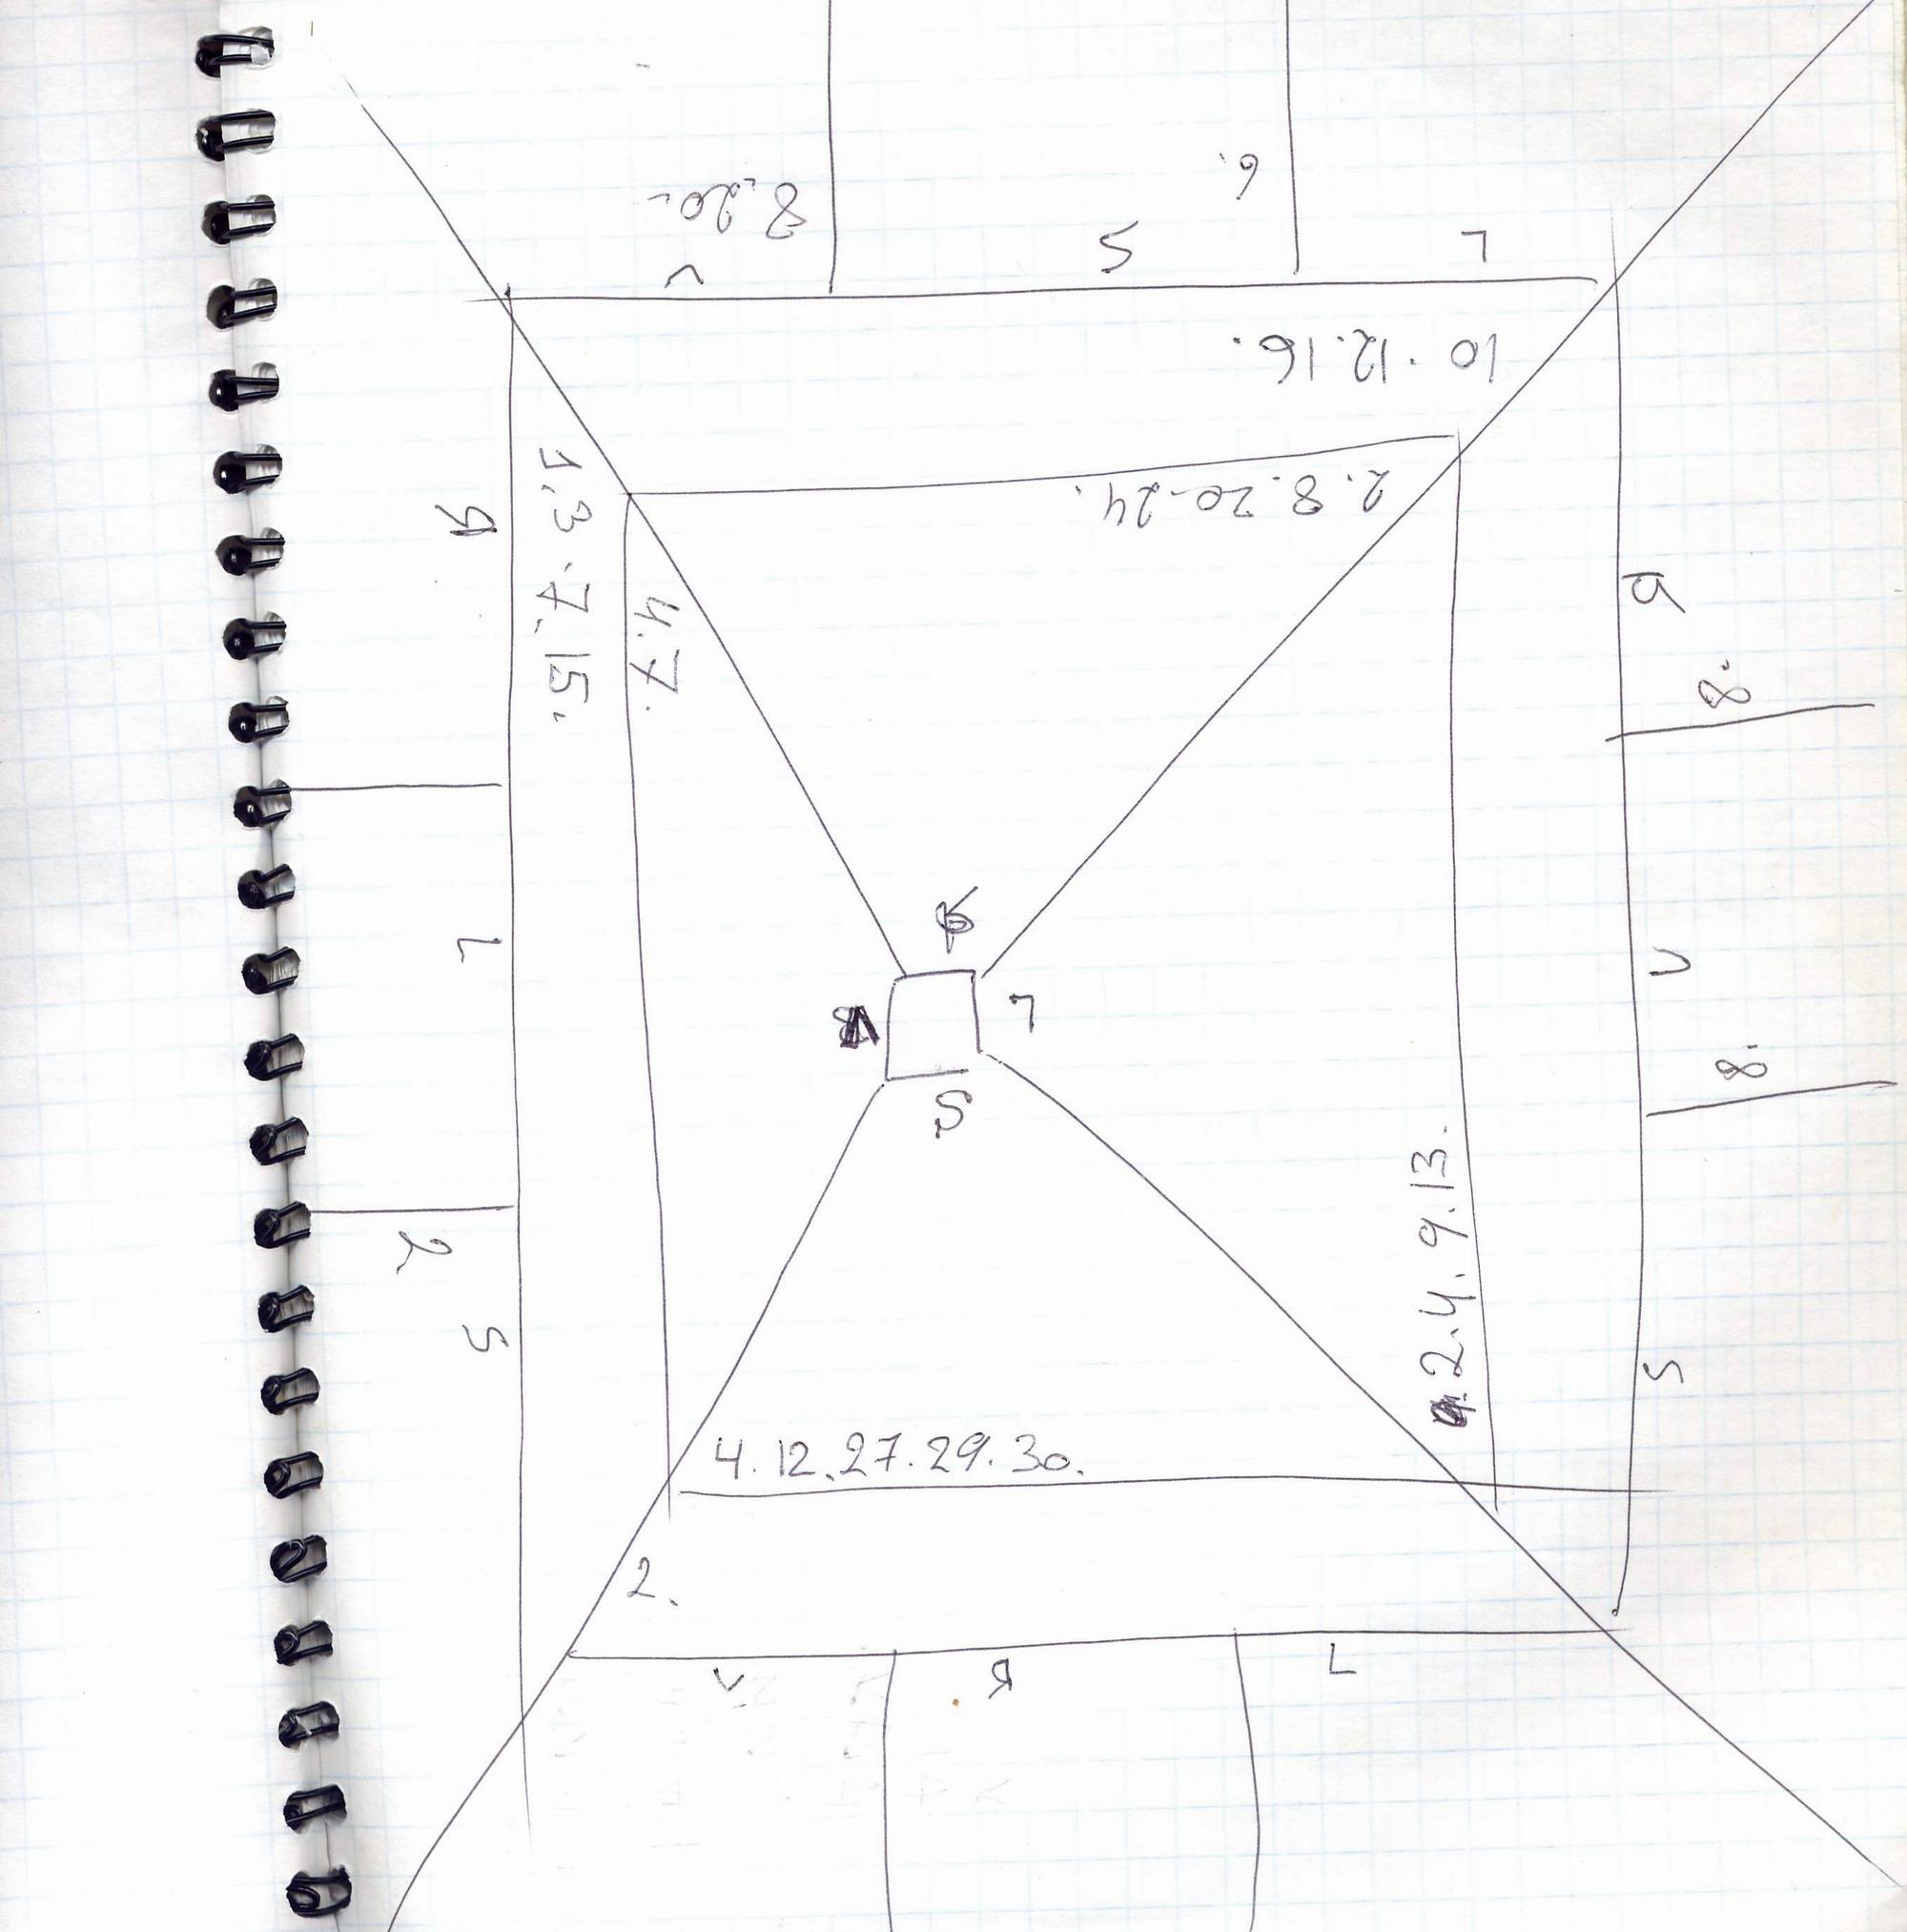 8.20.
6.
V
S
L
10.12.16.
2.8.20.24.
Я
1.3.7.15.
4.7.
Я
8.
L
V
L
8.
S
2.4.9.13.
2
S
S
4.12.27.29.30.
2.
V
Я
L